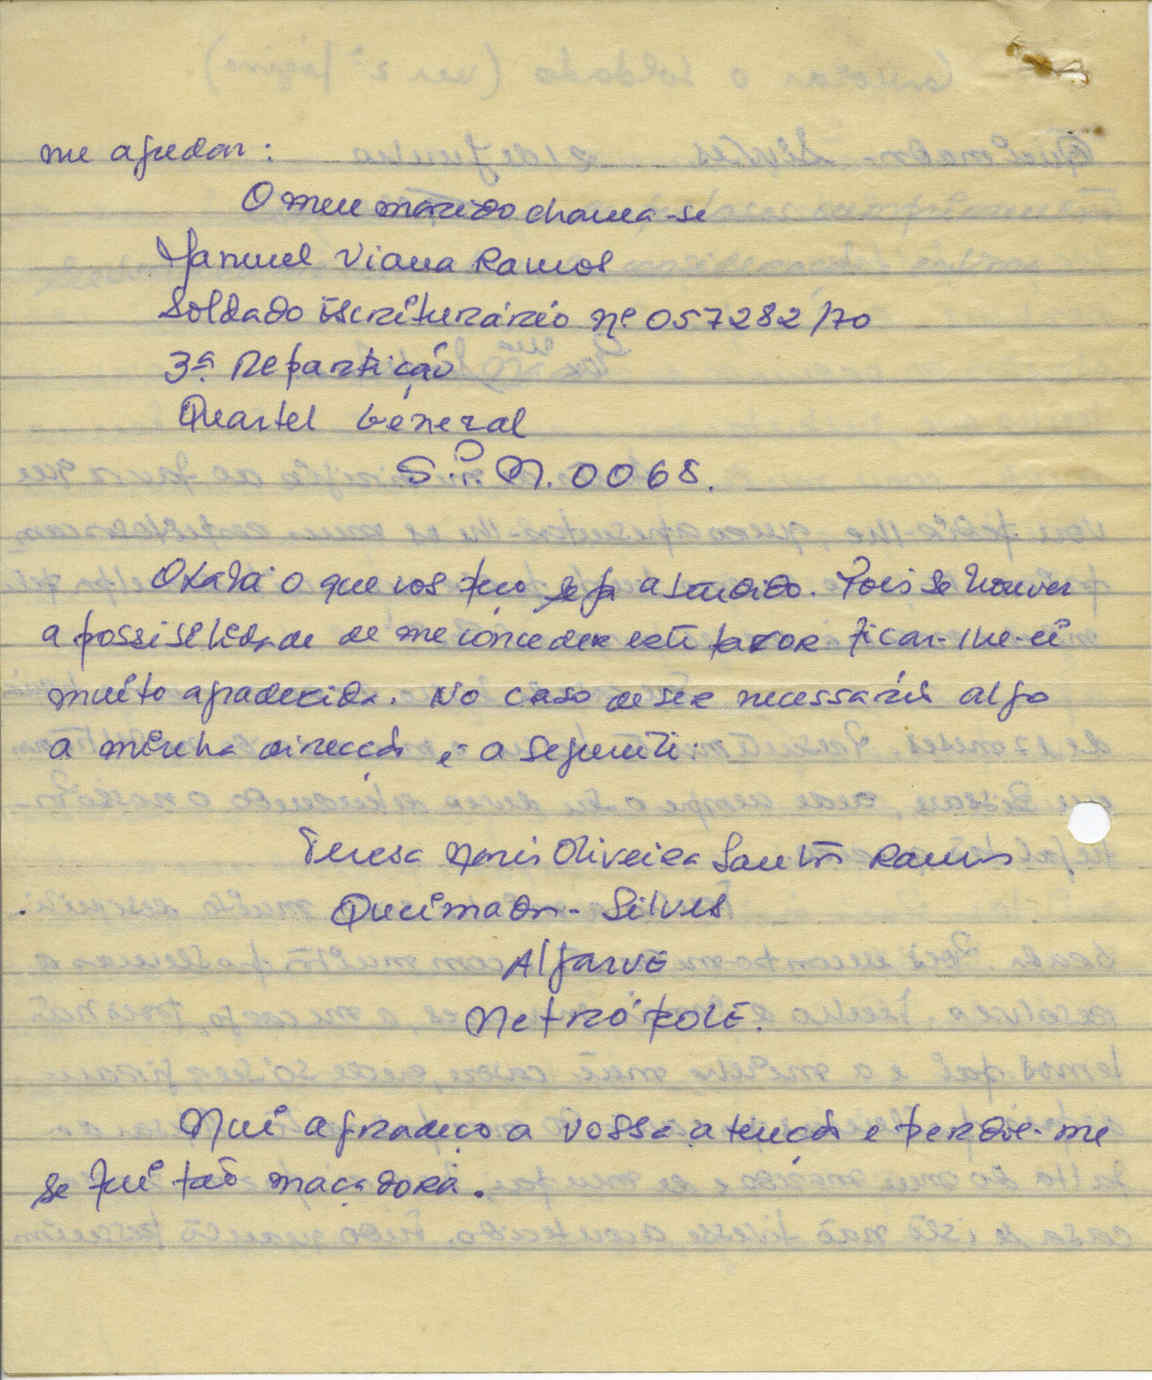 me ajudar:
O meu marido chama-se
Manuel Viana Ramos
Soldado Escriturário nº 057282/70
3ª Repartição
Quartel General
S.P.M. 0068.
Oxalá o que vos peço seja atendido. Pois se houver
a possibilidade de me conceder este favor ficar-lhe-ei
muito agradecida. No caso de ser necessário algo
a minha direcção é a seguinte:
Teresa Maria Oliveira Santos Ramos
Queimada - Silves
Algarve
Metrópole.
Mui agradeço a vossa atenção e perdoe-me
se fui tão maçadora.